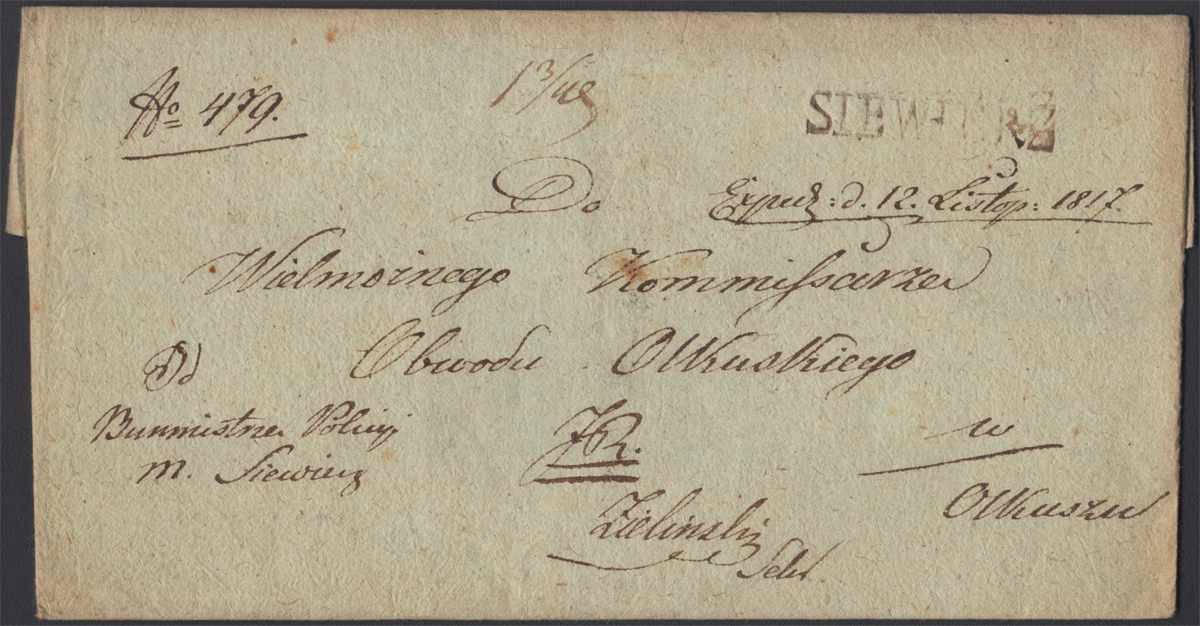 No 479.
SIEWIERZ
Do
Exped: d. 12. Listop: 1817.
Wielmoznego Kommissarza
Obwodu Olkuskiego
Od
Burmistrza Policyi
w
m. Siewierz
JR.
Olkuszu
Zielinski
Sekr